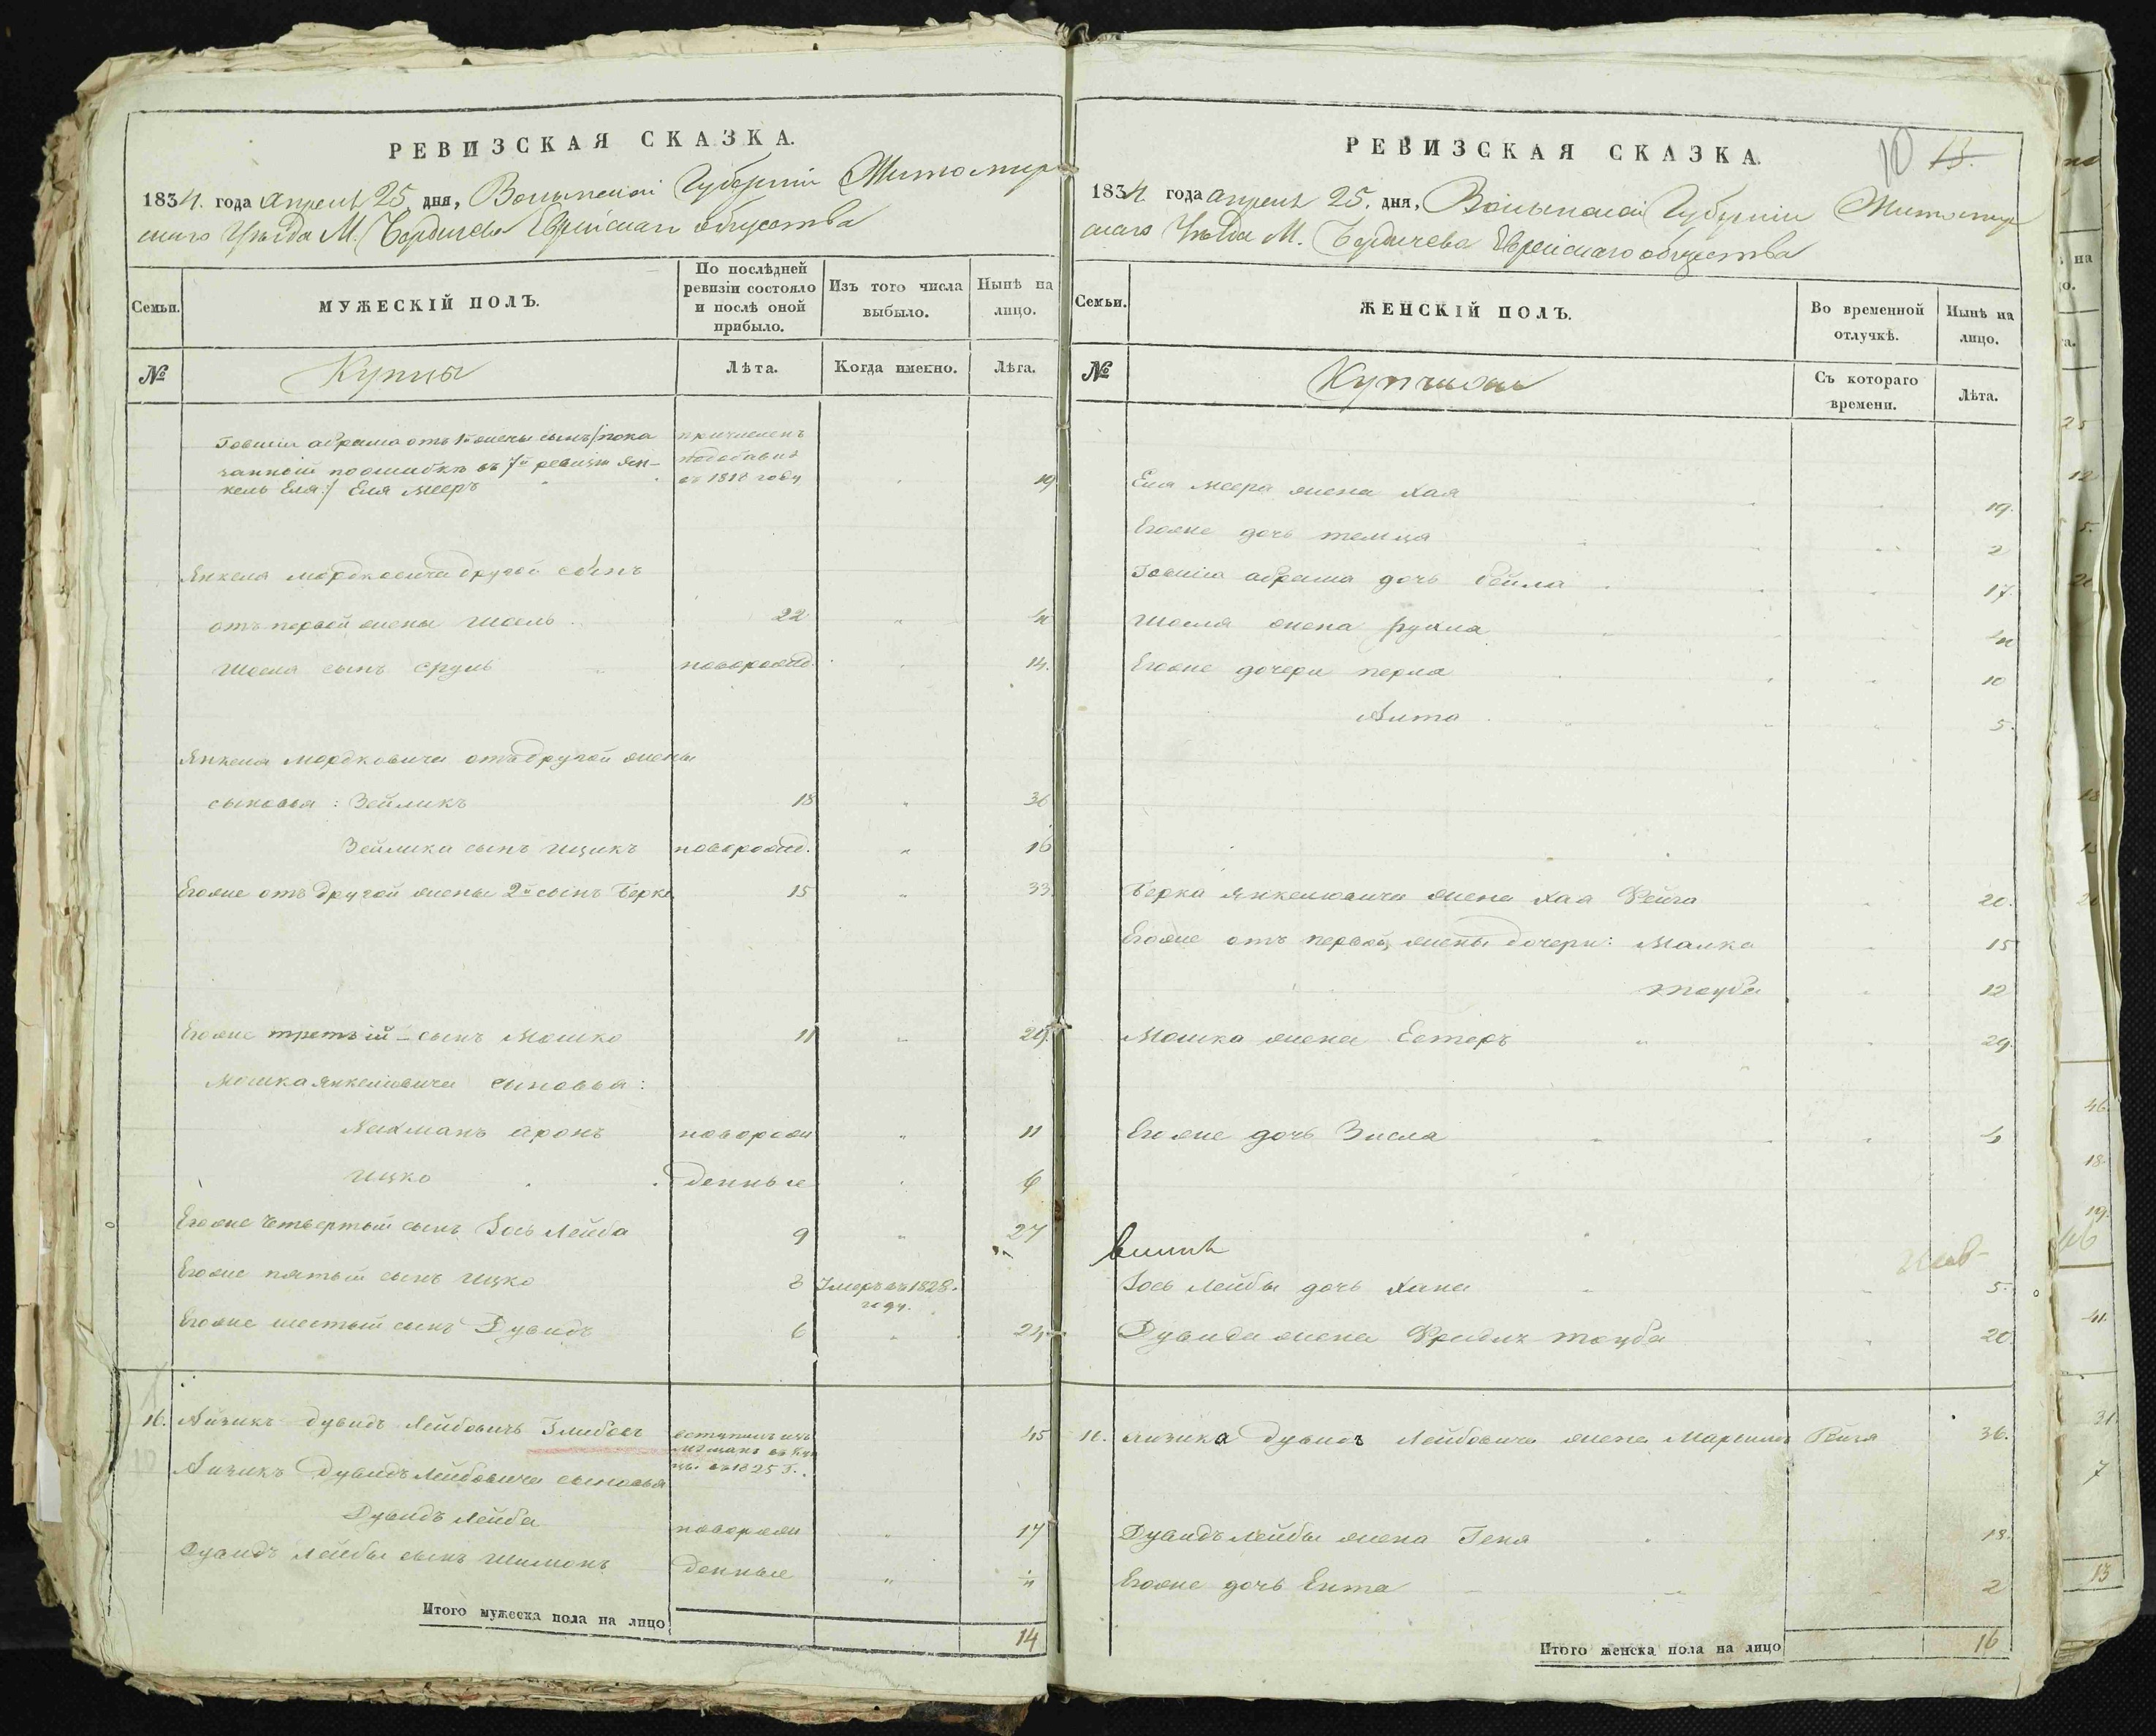 РЕВИЗСКАЯ СКАЗКА.
1834. года апреля 25 дня, Волынской Губернии Житомир
скаго Уѣзда М. Бердичева Еврейскаго общества
Семьи.
МУЖЕСКІЙ ПОЛЪ.
По послѣдней ревизіи состояло и послѣ оной прибыло.
Изъ того числа выбыло.
Нынѣ на лицо.
№
Купцы
Лѣта.
Когда именно.
Лѣта.
абрама отъ 1й жены сынъ /пока
занный по ошибкѣ въ 7й ревизіи Ян-
кель Еля:/ Еля Мееръ
причисленъ
въ 1818 году
19
Янкеля Мордковича другой сынъ
отъ первой жены Шоель 22
Шоеля сынъ Сруль новорожд. 14.
Янкеля Мордковича отъ другой жены
сыновья: Зейликъ 18 36
Зейлика сынъ Ицикъ новорожд. 16
Егоже отъ другой жены 2й сынъ Берко 15 33.
Егоже третьій - сынъ Мошко 11 29.
Мошка Янкелиовича сыновья:
Нахманъ аронъ новорож 11
Ицко денные 6
Егоже четвертый сынъ Іось Лейба 9 27
Егоже пятый сынъ Ицко 8 Умеръ въ 1828.
году.
Егоже шестый сынъ Дувидъ 6 24
16. Айзикъ Дувидъ Лейбовичъ
вступилъ изъ
мѣщанъ въ Куп
цы въ 1825 г.
45
Айзикъ Дувидъ Лейбовича сыновья
Дувидъ Лейба новорож 17
Дувидъ Лейбы сынъ Шимонъ денные
Итого мужеска пола на лицо 14
РЕВИЗСКАЯ СКАЗКА.
10 13.
1834. года апреля 25. дня, Волынской Губерніи Житомир
скаго Уѣзда М. Бердичева Еврейскаго общества
Семьи.
ЖЕНСКІЙ ПОЛЪ.
Во временной отлучкѣ.
Нынѣ на лицо.
№
Съ котораго времени.
Лѣта.
Еля Меера жена Хая 19.
Егоже дочь Темца 2
абрама дочь Бейла 17
Шоеля жена Рухла
Егоже дочери Перла 10
Алта 5.
Берка Янкелиовича жена Хая Фейга 20.
Егоже отъ первой жены дочери: Малка 15
Тауба 12
Мошка жена Естеръ 29.
Егоже дочь Зисля 4
Іось Лейбы дочь Хана 5.
Дувида жена Фрейда Тауба 20
16. Айзика Дувидъ Лейбовича жена 36.
Дувидъ Лейбы жена Геня 18.
Егоже дочь Ента 2
Итого женска пола на лицо 16